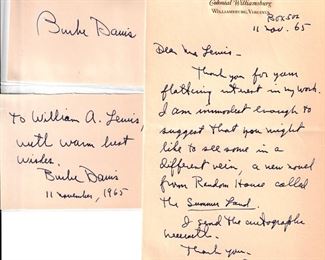 Burke Davis
To William A. Lewis,
with warm best
wishes.
Burke Davis
11 november, 1965
Colonial Williamsburg
WILLIAMSBURG, VIRGINIA
Box 502
11 Nov. 65
Dear Mr Lewis—
Thank you for your
flattering interest in my work.
I am immodest enough to
suggest that you might
like to see some in a
different vein, a new novel
from Random House called
The Summer Land.
I send the autographs
herewith.
Thank you—